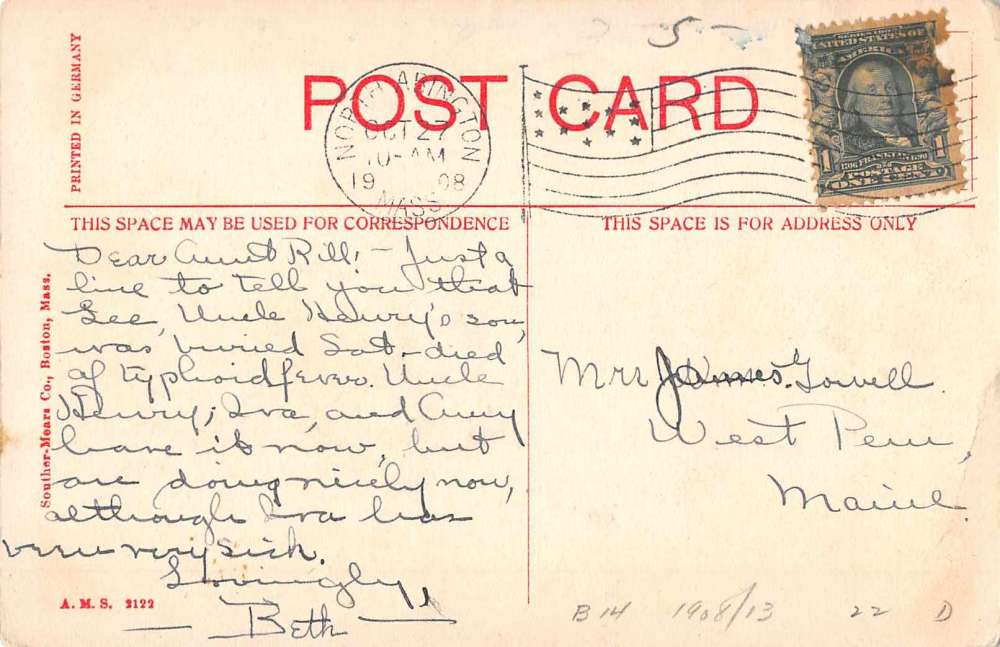 PRINTED IN GERMANY
5
POST CARD
NORTH ABINGTON
OCT 27
10-AM
1908
MASS.
SERIES 1902
UNITED STATES OF
AMERICA
1 1
1706 FRANKLIN 1790
POSTAGE
ONE CENT
THIS SPACE MAY BE USED FOR CORRESPONDENCE
THIS SPACE IS FOR ADDRESS ONLY
Souther-Mears Co., Boston, Mass.
Dear Aunt Rill: - Just a
line to tell you that
Lee, Uncle Henry's son,
was buried Sat. - died
of typhoid fever. Uncle
Henry, Iva, and Amy
have it now, but
are doing nicely now,
although Iva has
been very sick.
Lovingly,
- Beth -
Mrs James Lowell
West Peru,
Maine.
A. M. S. 2122
B 14 1908/13 22 D